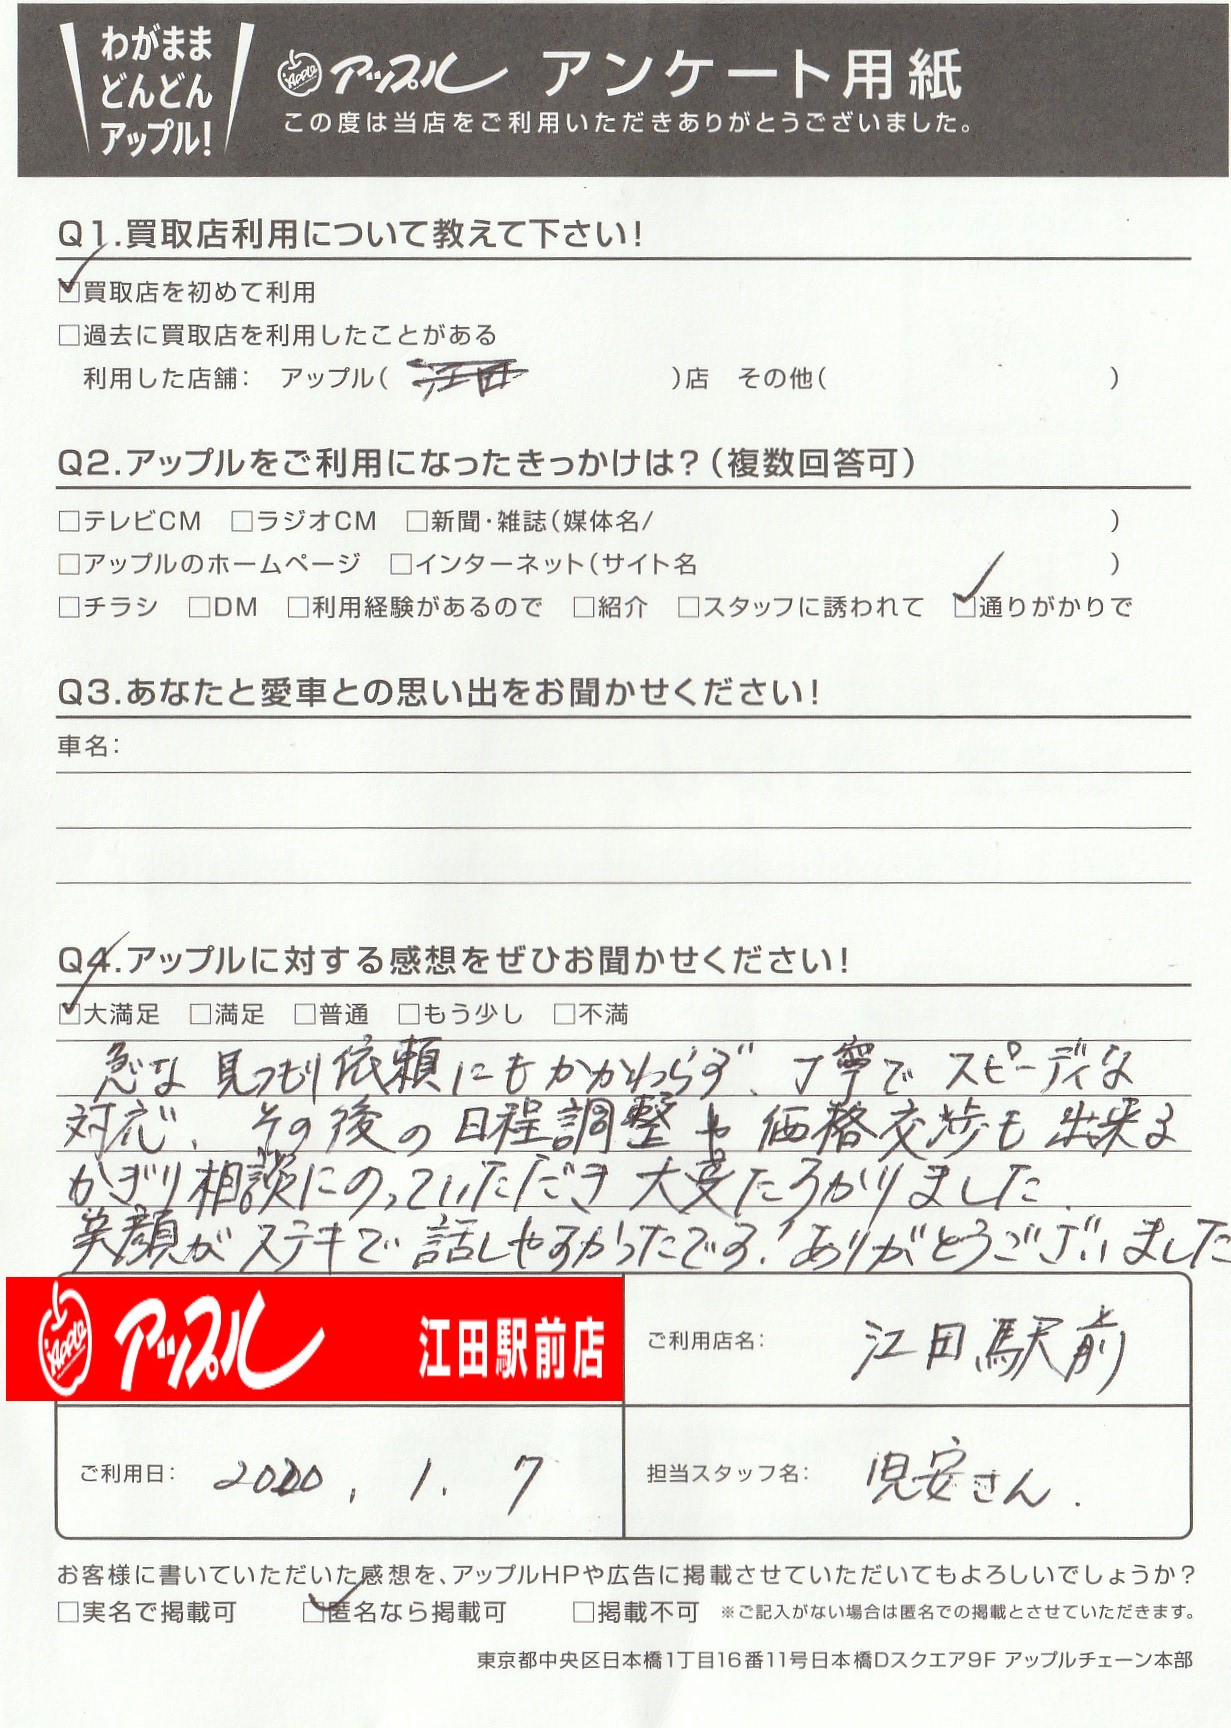 わがまま
どんどん
アップル!
Apple アップル アンケート用紙
この度は当店をご利用いただきありがとうございました。
Q1.買取店利用について教えて下さい!
☑買取店を初めて利用
□過去に買取店を利用したことがある
利用した店舗: アップル( 江田 )店 その他( )
Q2.アップルをご利用になったきっかけは?(複数回答可)
□テレビCM □ラジオCM □新聞・雑誌(媒体名/ )
□アップルのホームページ □インターネット(サイト名 )
□チラシ □DM □利用経験があるので □紹介 □スタッフに誘われて ☑通りがかりで
Q3.あなたと愛車との思い出をお聞かせください!
車名:
Q4.アップルに対する感想をぜひお聞かせください!
☑大満足 □満足 □普通 □もう少し □不満
急な見つもり依頼にもかかわらず、丁寧でスピーディな
対応、その後の日程調整や価格交渉も出来る
かぎり相談にのっていただき大変たすかりました.
笑顔がステキで話しやすかったです!ありがとうございました
Apple アップル 江田駅前店
ご利用店名: 江田駅前
ご利用日: 2020. 1. 7
担当スタッフ名: 児安さん.
お客様に書いていただいた感想を、アップルHPや広告に掲載させていただいてもよろしいでしょうか?
□実名で掲載可 ☑匿名なら掲載可 □掲載不可 ※ご記入がない場合は匿名での掲載とさせていただきます。
東京都中央区日本橋1丁目16番11号日本橋Dスクエア9F アップルチェーン本部